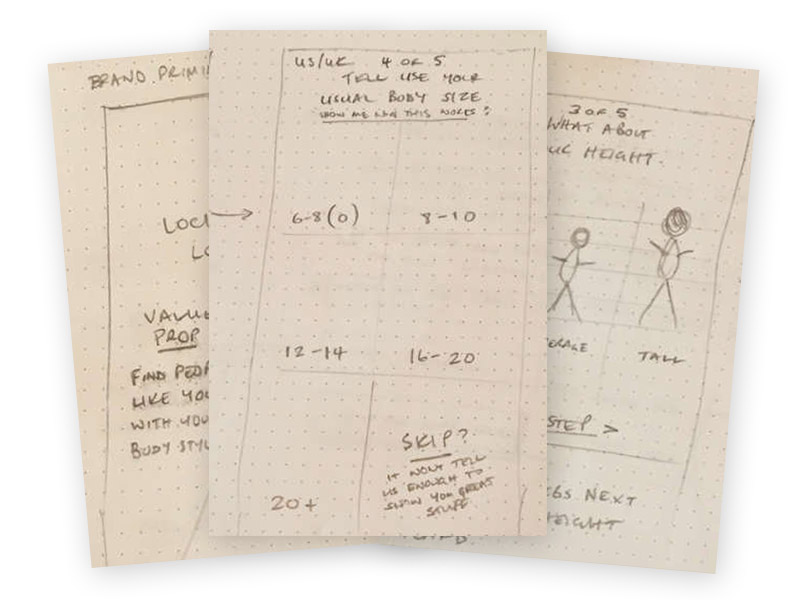 BRAND PRIMI
LOCI
LO
VALUE
PROP
FIND PEOP
LIKE YOU
WITH YOU
BODY STYL
US/UK 4 OF 5
TELL USE YOUR
USUAL BODY SIZE
SHOW ME HOW THIS WORKS?
6-8(0) 8-10
12-14 16-20
20+
SKIP?
IT WONT TELL
US ENOUGH TO
SHOW YOU GREAT
STUFF
3 OF 5
WHAT ABOUT
UR HEIGHT.
ERAGE TALL
STEP >
NEXT
HEIGHT